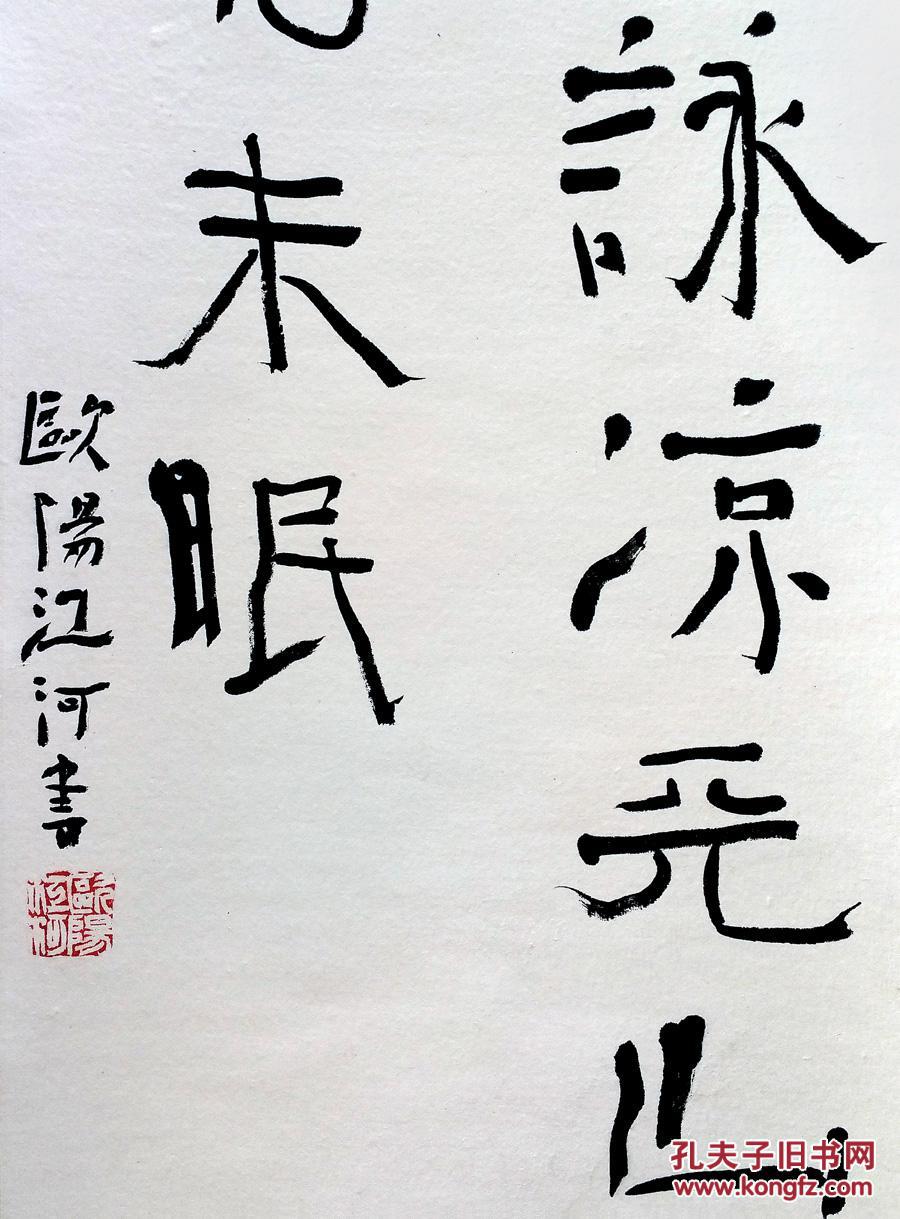 詠凉山
未眠
歐陽江河書
歐陽江河
孔夫子旧书网
www.kongfz.com